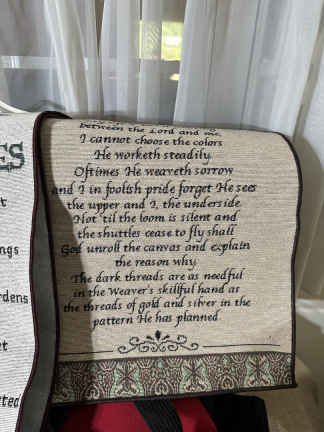 ES
between the Lord and me,
I cannot choose the colors
He worketh steadily.
Oftimes He weaveth sorrow
and I in foolish pride forget He sees
the upper and I, the underside.
Not 'til the loom is silent and
the shuttles cease to fly shall
God unroll the canvas and explain
the reason why.
The dark threads are as needful
in the Weaver's skillful hand as
the threads of gold and silver in the
pattern He has planned.